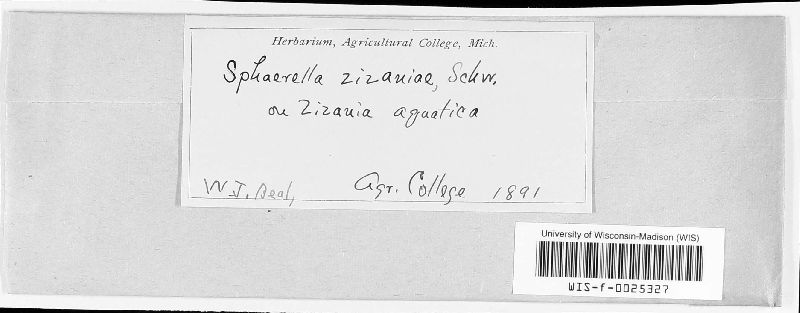 Herbarium, Agricultural College, Mich.
Sphaerella zizaniae, Schw.
on Zizania aquatica
W. J. Beal,
Agr. College 1891
University of Wisconsin-Madison (WIS)
WIS-f-0025327